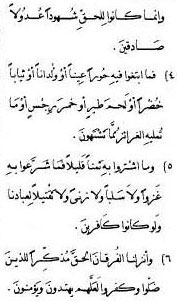 وإنما كانوا للحق شهوداً عدولاً
صادقين.
٤) فما ابتغوا فيه حوراً عيناً أو ولداناً أو ثياباً
خضراً أو لحم طير أو خمر رجس أو ما
تمليه الغرائز مما يشتهون.
٥) وما اشتروا به ثمناً قليلاً فما شرعوا به
غزواً ولا سلباً ولا زنى ولا تقتيلاً لعبادنا
ولو كانوا كافرين.
٦) وأنزلنا الفرقان الحق مذكراً للذين
ضلوا وكفروا لعلهم يهتدون ويؤمنون.